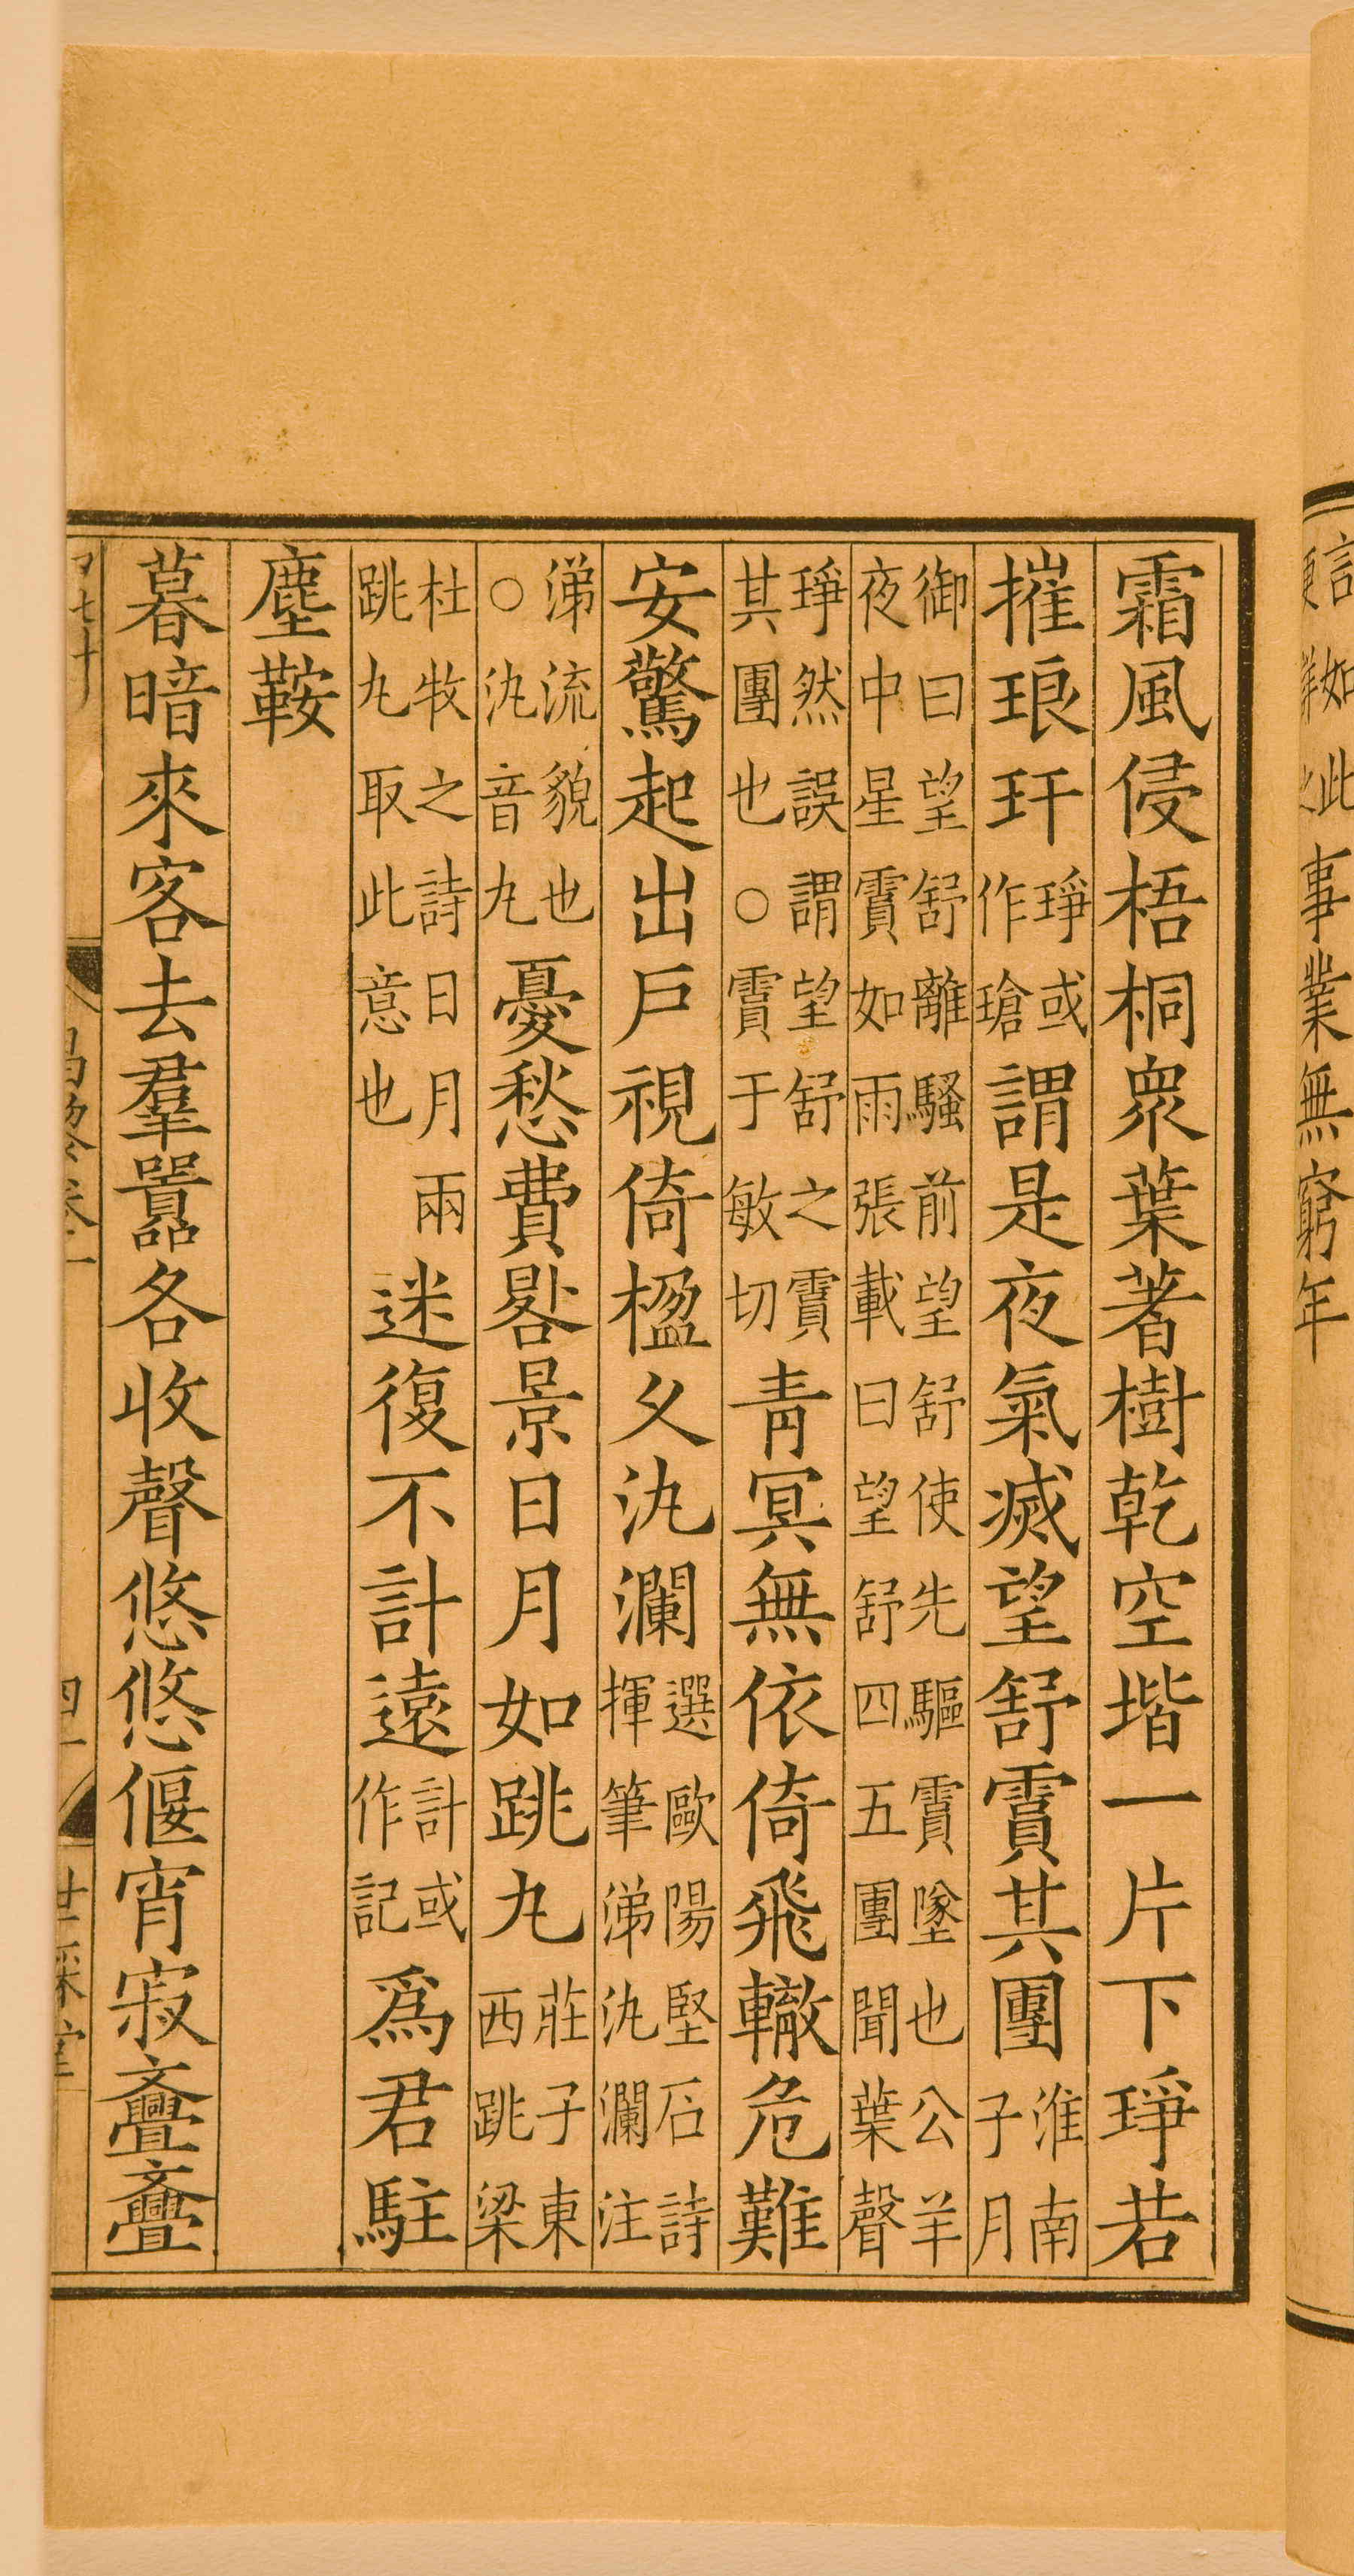 霜風侵梧桐衆葉著樹乾空堦一片下琤若
摧琅玕琤或作瑲謂是夜氣滅望舒霣其團淮南子月
御曰望舒離騷前望舒使先驅霣墜也公羊
夜中星霣如雨張載曰望舒四五團聞葉聲
琤然誤謂望舒之霣
其團也○霣于敏切青冥無依倚飛轍危難
安驚起出戶視倚楹久汍瀾選歐陽堅石詩揮筆涕汍瀾注
涕流貌也○汍音九憂愁費晷景日月如跳丸莊子東西跳梁
杜牧之詩日月兩跳丸取此意也迷復不計遠計或作記爲君駐
塵鞍
暮暗來客去羣囂各收聲悠悠偃宵寂亹亹
言如此
事業無窮年